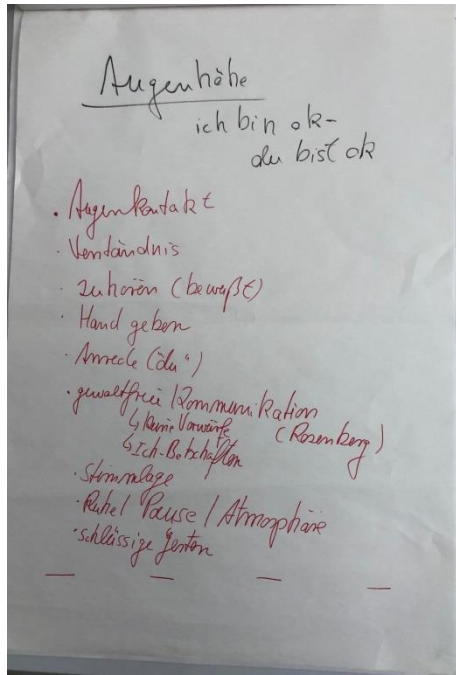 Augenhöhe
ich bin ok-
du bist ok
· Augenkontakt
· Verständnis
· zuhören (bewußt)
· Hand geben
· Anrede („du“)
· gewaltfreie Kommunikation
↳ keine Vorwürfe (Rosenberg)
↳ Ich-Botschaften
· Stimmlage
· Ruhe / Pause / Atmosphäre
· schlüssige Gesten